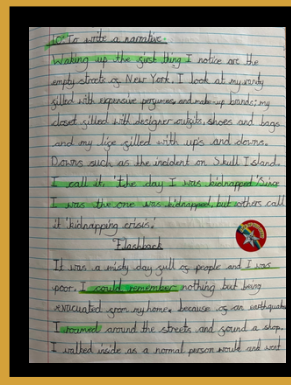 LO: To write a narrative.
Waking up the first thing I notice are the
empty streets of New York. I look at my vanity
filled with expensive perfumes and make-up brands; my
closet filled with designer outfits, shoes and bags
and my life filled with ups and downs.
Downs such as the incident on Skull Island.
I call it, 'the day I was kidnapped' Since
I was the one was kidnapped, but others call
it 'kidnapping crisis.
Flashback
It was a misty day full of people and I was
poor. I could remember nothing but being
evacuated from my home, because of an earthquake
I roamed around the streets and found a shop.
I walked inside as a normal person would and went